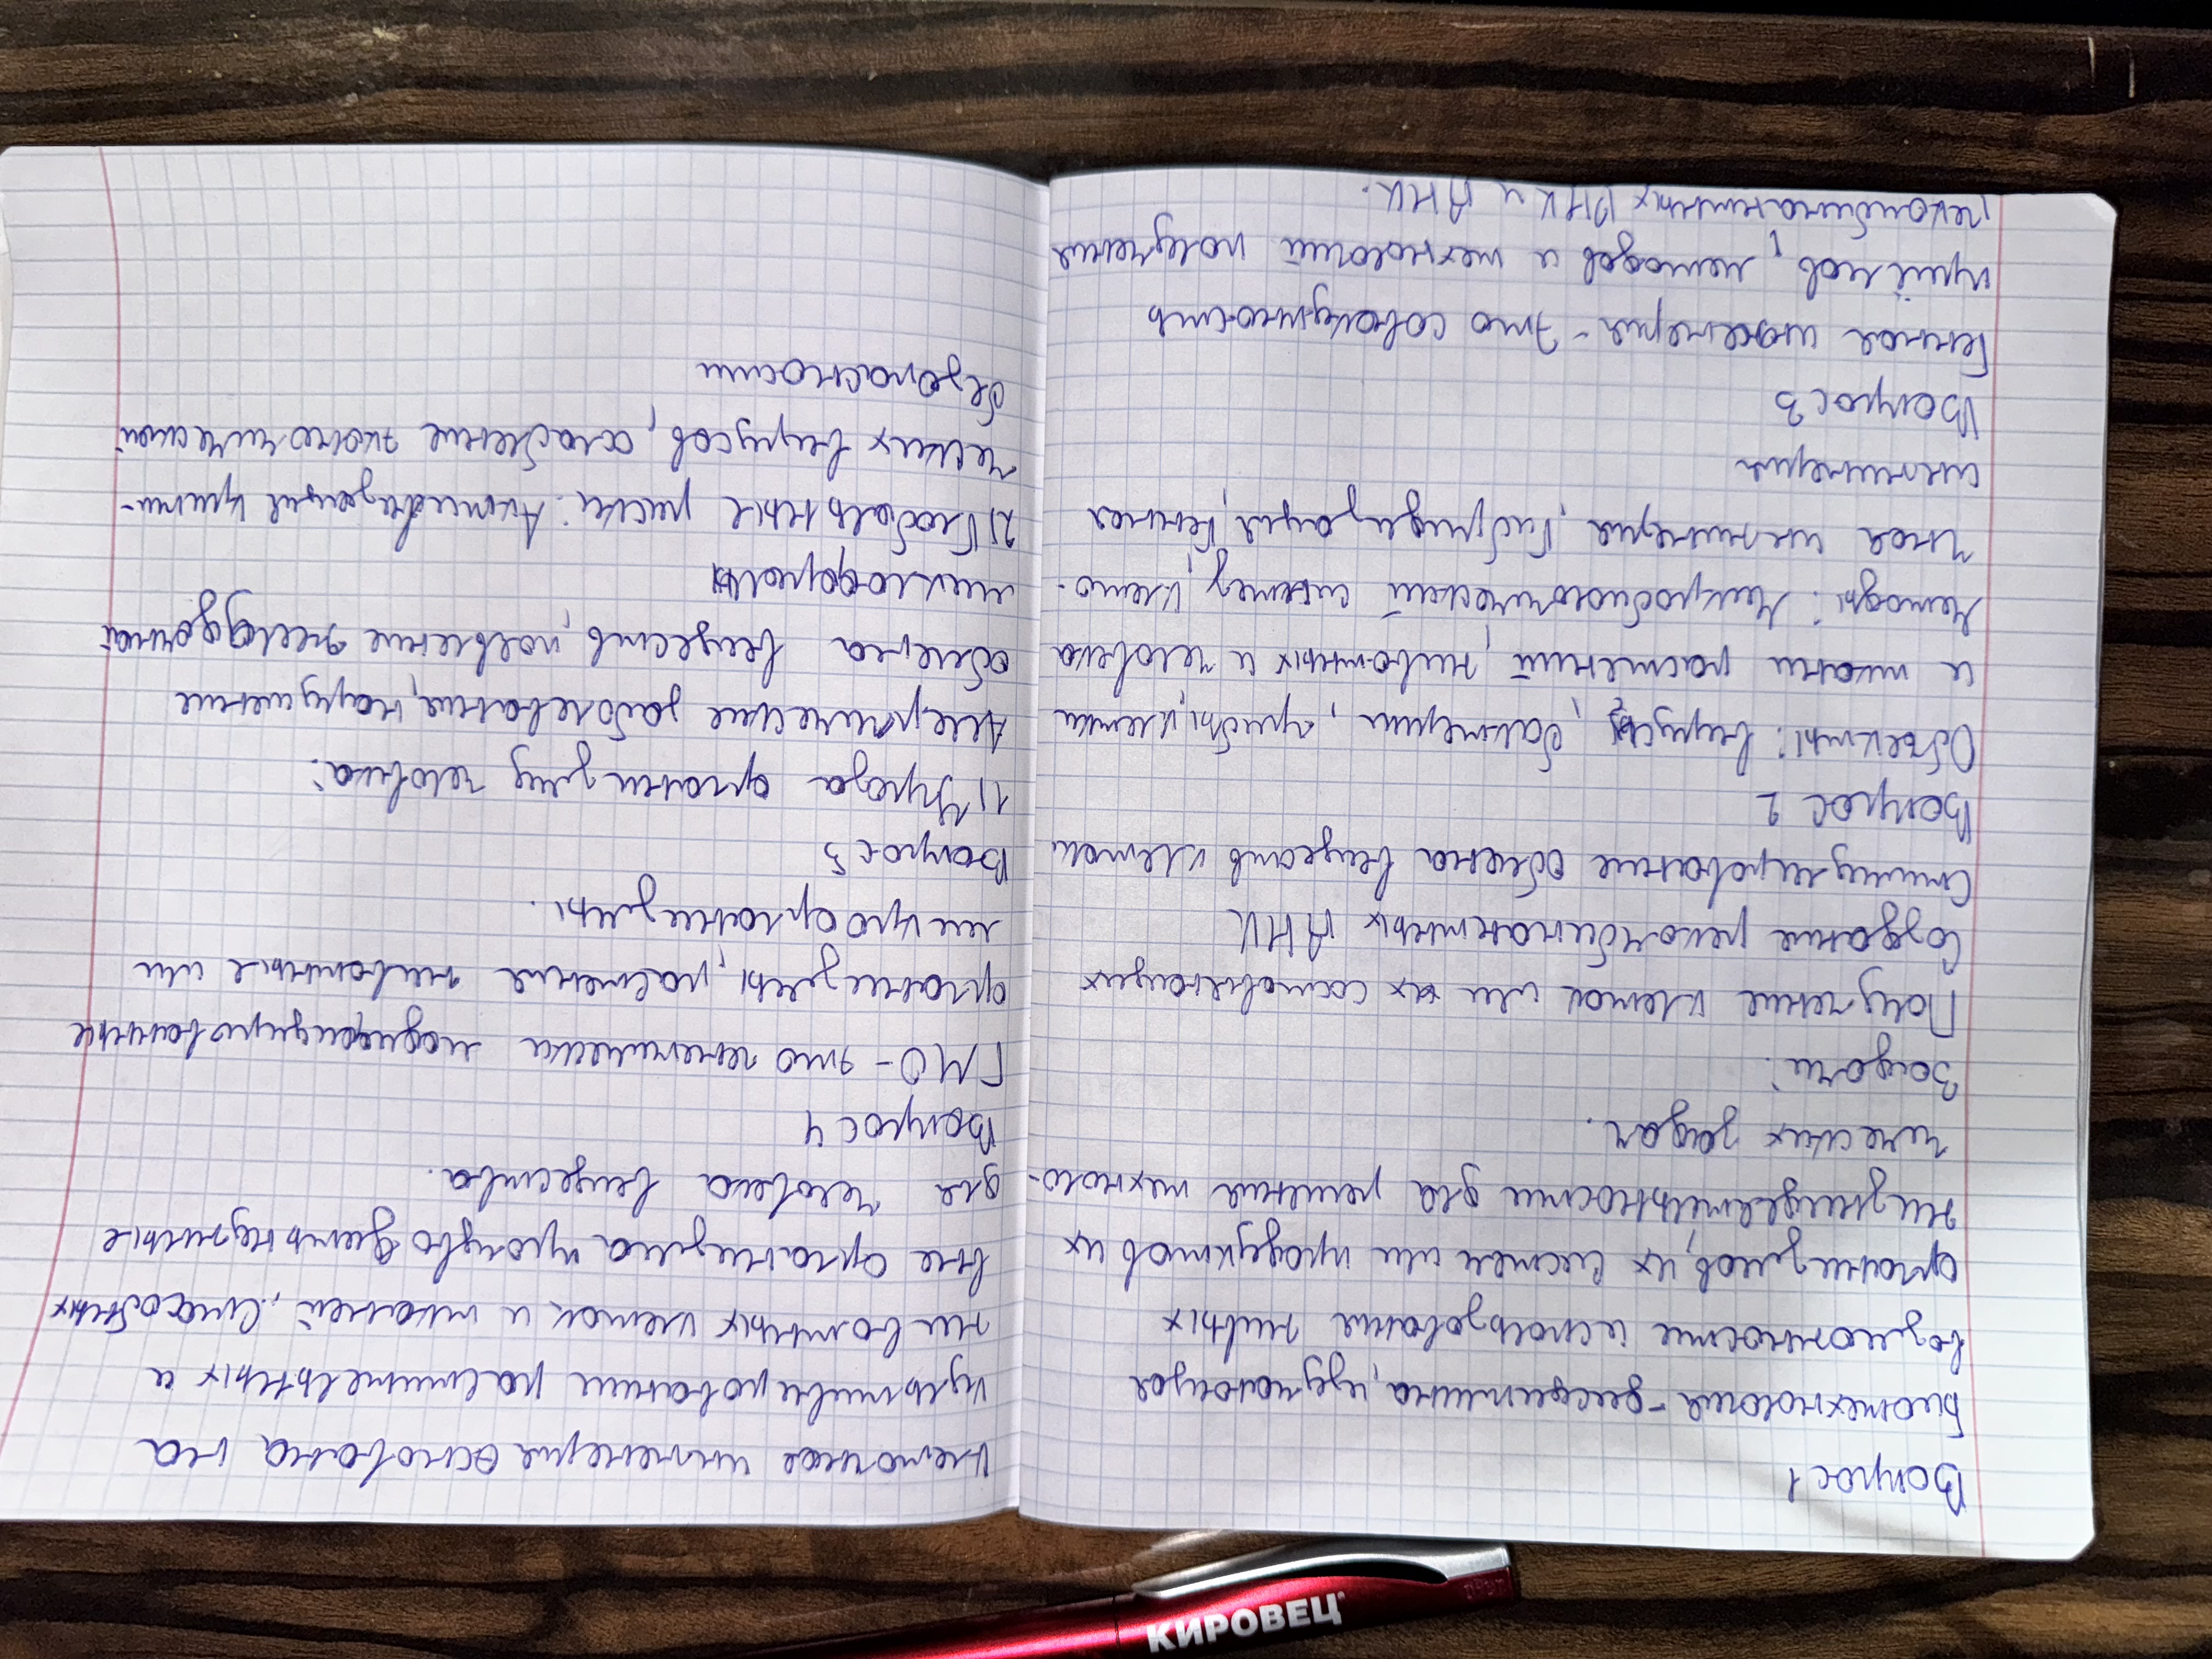 Вопрос 1
Биотехнология - дисциплина, изучающая
возможности использования живых
организмов, их систем или продуктов их
жизнедеятельности для решения техноло-
гических задач.
Задачи:
Получение клеток или их составляющих
Создание рекомбинантных ДНК
Стимулирование обмена веществ клетки
Вопрос 2
Объекты: вирусы, бактерии, грибы, клетки
и ткани растений, животных и человека
Методы: Микробиологический синтез, клето-
чная инженерия, гибридизация, генная
инженерия
Вопрос 3
Генная инженерия - это совокупность
приёмов, методов и технологий получения
рекомбинантных РНК и ДНК.
Клеточная инженерия основана на
культивировании растительных и
животных клеток и тканей, способных
вне организма производить нужные
для человека вещества.
Вопрос 4
ГМО - это генетически модифицированные
организмы, растения животные или
микроорганизмы.
Вопрос 5
1) Угроза организму человека:
Аллергические заболевания, нарушение
обмена веществ, появление желудочной
микрофлоры
2) Глобальные риски: Активизация крити-
ческих вирусов, ослабление экономической
безопасности
КИРОВЕЦ